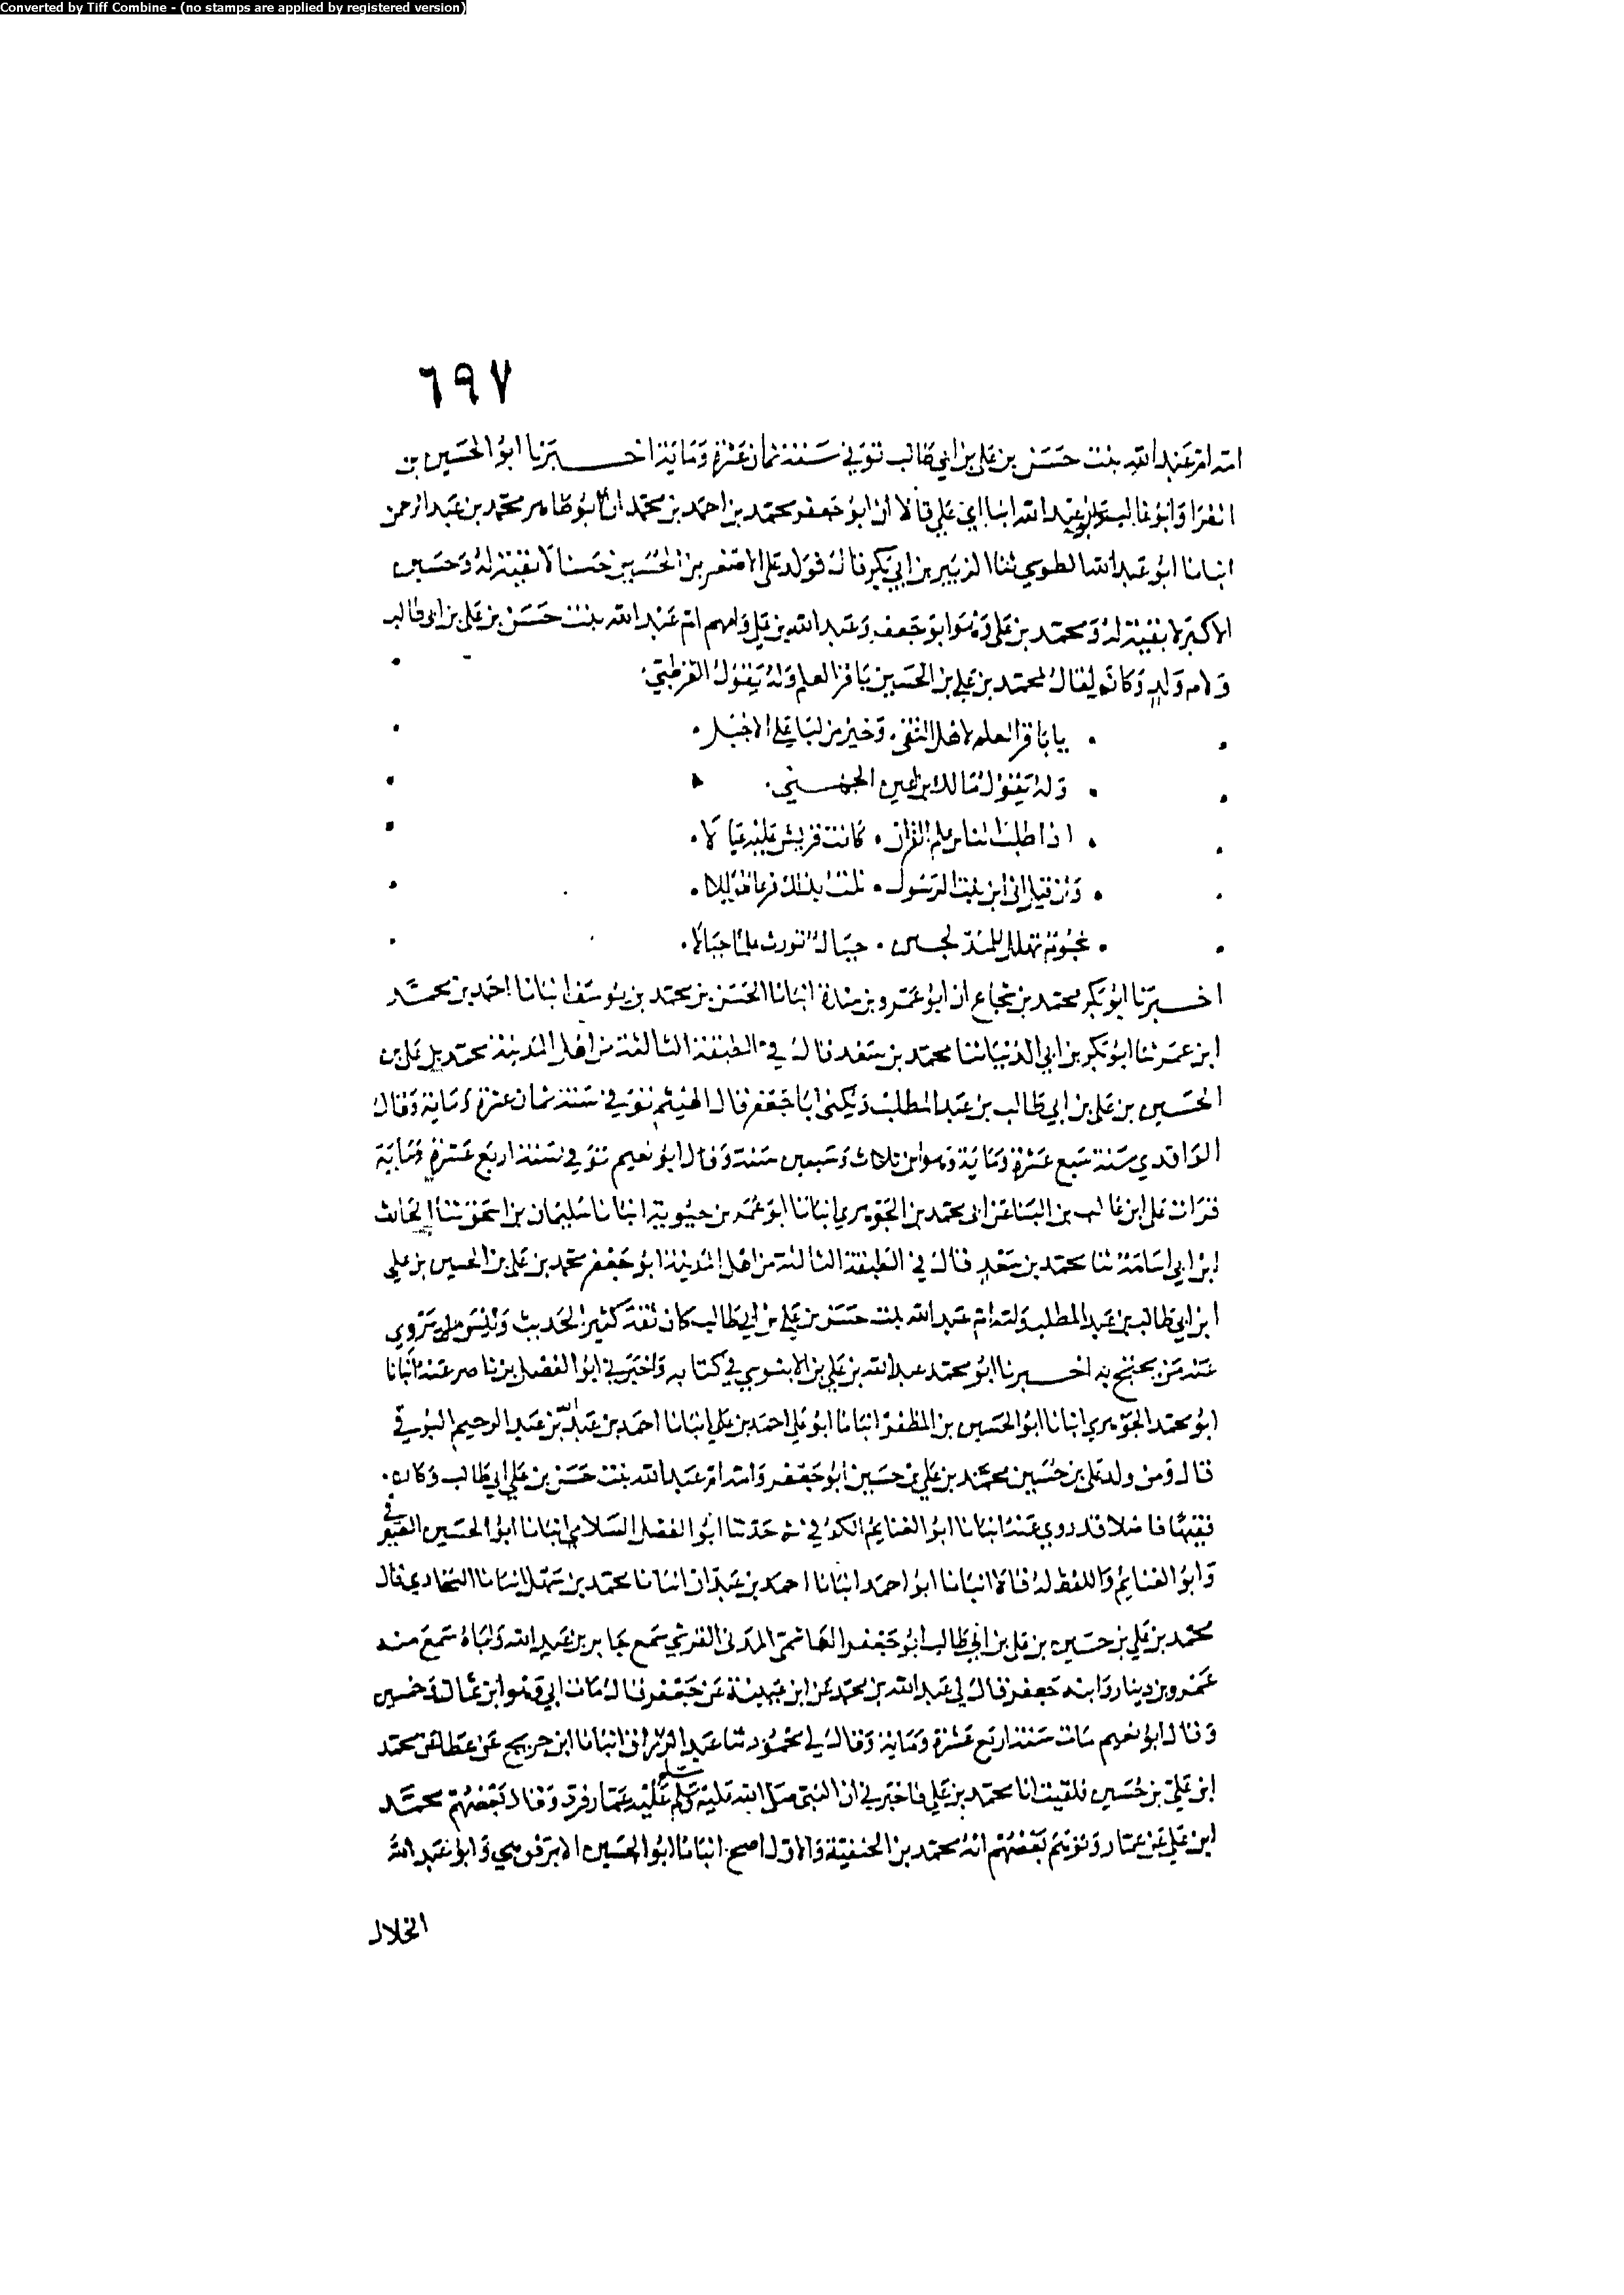 Converted by Tiff Combine - (no stamps are applied by registered version)
٦٩٧
امه ام عبد الله بنت حسن بن علي بن ابي طالب توفي سنة ثمان عشرة وماية اخبرنا ابو الحسين بن
الفرا وابو غالب وابو عبد الله ابنا ابي علي قالا انا ابو جعفر محمد بن احمد بن محمد انا ابو طاهر محمد بن عبد الرحمن
انبانا ابو عبد الله الطوسي ثنا الزبير بن ابي بكر قال فولد علي الاصغر بن الحسين حسنا لا بقية له وحسين
الاكبر لا بقية له ومحمد بن علي وهو ابو جعفر وعبد الله بن علي وامهم ام عبد الله بنت حسن بن علي بن ابي طالب
ولام ولد وكان يقال لمحمد بن علي بن الحسين باقر العلم وله يقول القرظي
يا باقر العلم لاهل التقى . وخير من لبا على الاجبل .
وله يقول مالك بن اعين الجهني .
اذا طلب الناس علم القران . كانت قريش عليه عيالا .
وان قيل اين ابن بنت الرسول . نلت بذلك فرعا طوالا .
نجوم تهلل للمدلجين . جبال تورث علما جبالا .
اخبرنا ابو بكر محمد بن شجاع انا ابو عمرو بن مندة انبانا الحسن بن محمد بن يوسف انبانا احمد بن محمد
ابن عمر ثنا ابو بكر بن ابي الدنيا ثنا محمد بن سعد قال في الطبقة الثالثة من اهل المدينة محمد بن علي بن
الحسين بن علي بن ابي طالب بن عبد المطلب ويكنى ابا جعفر قال الهيثم توفي سنة ثمان عشرة وماية وقال
الواقدي سنة سبع عشرة وماية وهو ابن ثلاث وسبعين سنة وقال ابو نعيم توفي سنة اربع عشرة وماية
قرات على ابن غالب بن البنا عن ابي محمد بن الجوهري انبانا ابو عمر بن حيوية انبانا سليمان بن اسحق ثنا الحارث
ابن ابي اسامة ثنا محمد بن سعد قال في الطبقة الثالثة من اهل المدينة ابو جعفر محمد بن علي بن الحسين بن علي
ابن ابي طالب بن عبد المطلب وامه ام عبد الله بنت حسن بن علي بن ابي طالب كان ثقة كثير الحديث وليس يروي
عنه من يحتج به اخبرنا ابو محمد عبد الله بن علي بن الابنوسي في كتابه واخبرني ابو الفضل بن ناصر عنه انبانا
ابو محمد الجوهري انبانا ابو الحسين بن المظفر انبانا ابو علي احمد بن علي انبانا احمد بن عبد الله بن عبد الرحيم البرقي
قال ومن ولد علي بن حسين محمد بن علي بن حسين ابو جعفر وامه ام عبد الله بنت حسن بن علي ابي طالب وكان .
فقيها فاضلا قد روي عنه انبانا ابو الغنايم الكوفي ثم حدثنا ابو الفضل السلامي انبانا ابو الحسين الصيرفي
وابو الغنايم واللفظ له قالا انبانا ابو احمد انبانا احمد بن عبدان انبانا محمد بن سهل انبانا البخاري قال
محمد بن علي بن حسين بن علي بن ابي طالب ابو جعفر الهاشمي المدني القرشي سمع جابر بن عبد الله واباه سمع منه
عمرو بن دينار وابنه جعفر قال لي عبد الله بن محمد عن ابن عيينة عن جعفر قال مات ابي وهو ابن ثمان وخمسين
وقال ابو نعيم مات سنة اربع عشرة وماية وقال لي محمود ثنا عبد الرزاق انبانا ابن جريج عن عطا عن محمد
ابن علي بن حسين فلقيت انا محمد بن علي فاخبرني ان النبي صلى الله عليه وسلم سلم عليه عمار فرد وقال بعضهم محمد
ابن علي عن عمار وتوهم بعضهم انه محمد بن الحنفية والاول اصح انبانا ابو الحسين الابرقوهي وابو عبد الله
الخلال